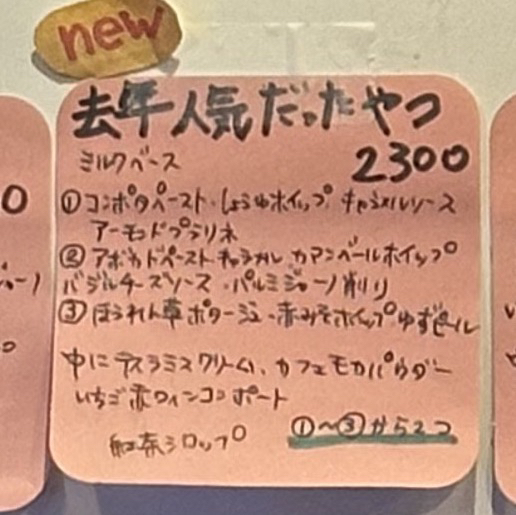 new
去年人気だったやつ
ミルクベース 2300
①コンポタペースト・しょうゆホイップ キャラメルソース
アーモンドプラリネ
②アボカドペースト キャラメル カマンベールホイップ
バジルチーズソース・パルミジャーノ削り
③ほうれん草ポタージュ・赤みそホイップ ゆずピール
中にティラミスクリーム、カフェモカパウダー
いちご赤ワインコンポート
紅茶シロップ ①〜③から2つ